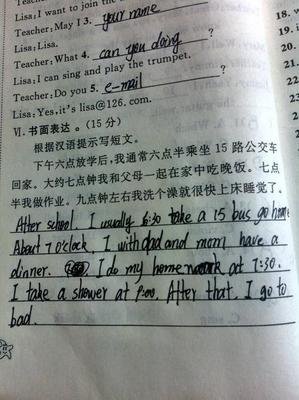 Lisa: I want to join the
Teacher: May I 3. your name
Lisa: Lisa.
Teacher: What 4. can you doing ?
Lisa: I can sing and play the trumpet.
Teacher: Do you 5. e-mail ?
Lisa: Yes, it's lisa@126.com.
Ⅵ. 书面表达。(15 分)
根据汉语提示写短文。
下午六点放学后,我通常六点半乘坐 15 路公交车
回家。大约七点钟我和父母一起在家中吃晚饭。七点
半我做作业。九点钟左右我洗个澡就很快上床睡觉了。
After school I usually 6:30 take a 15 bus go home
About 7 o'clock, I with dad and mom have a
dinner. I do my homework at 7:30.
I take a shower at 9:00. After that, I go to
bad.
18.
19.
20.